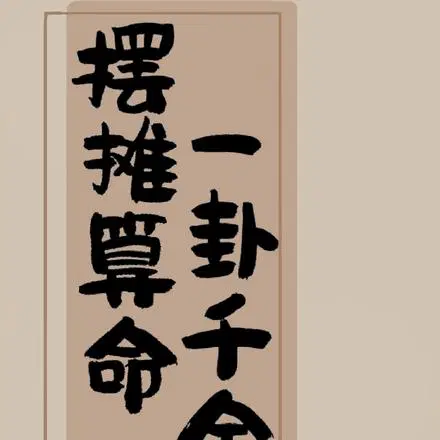 摆摊算命
一卦千金